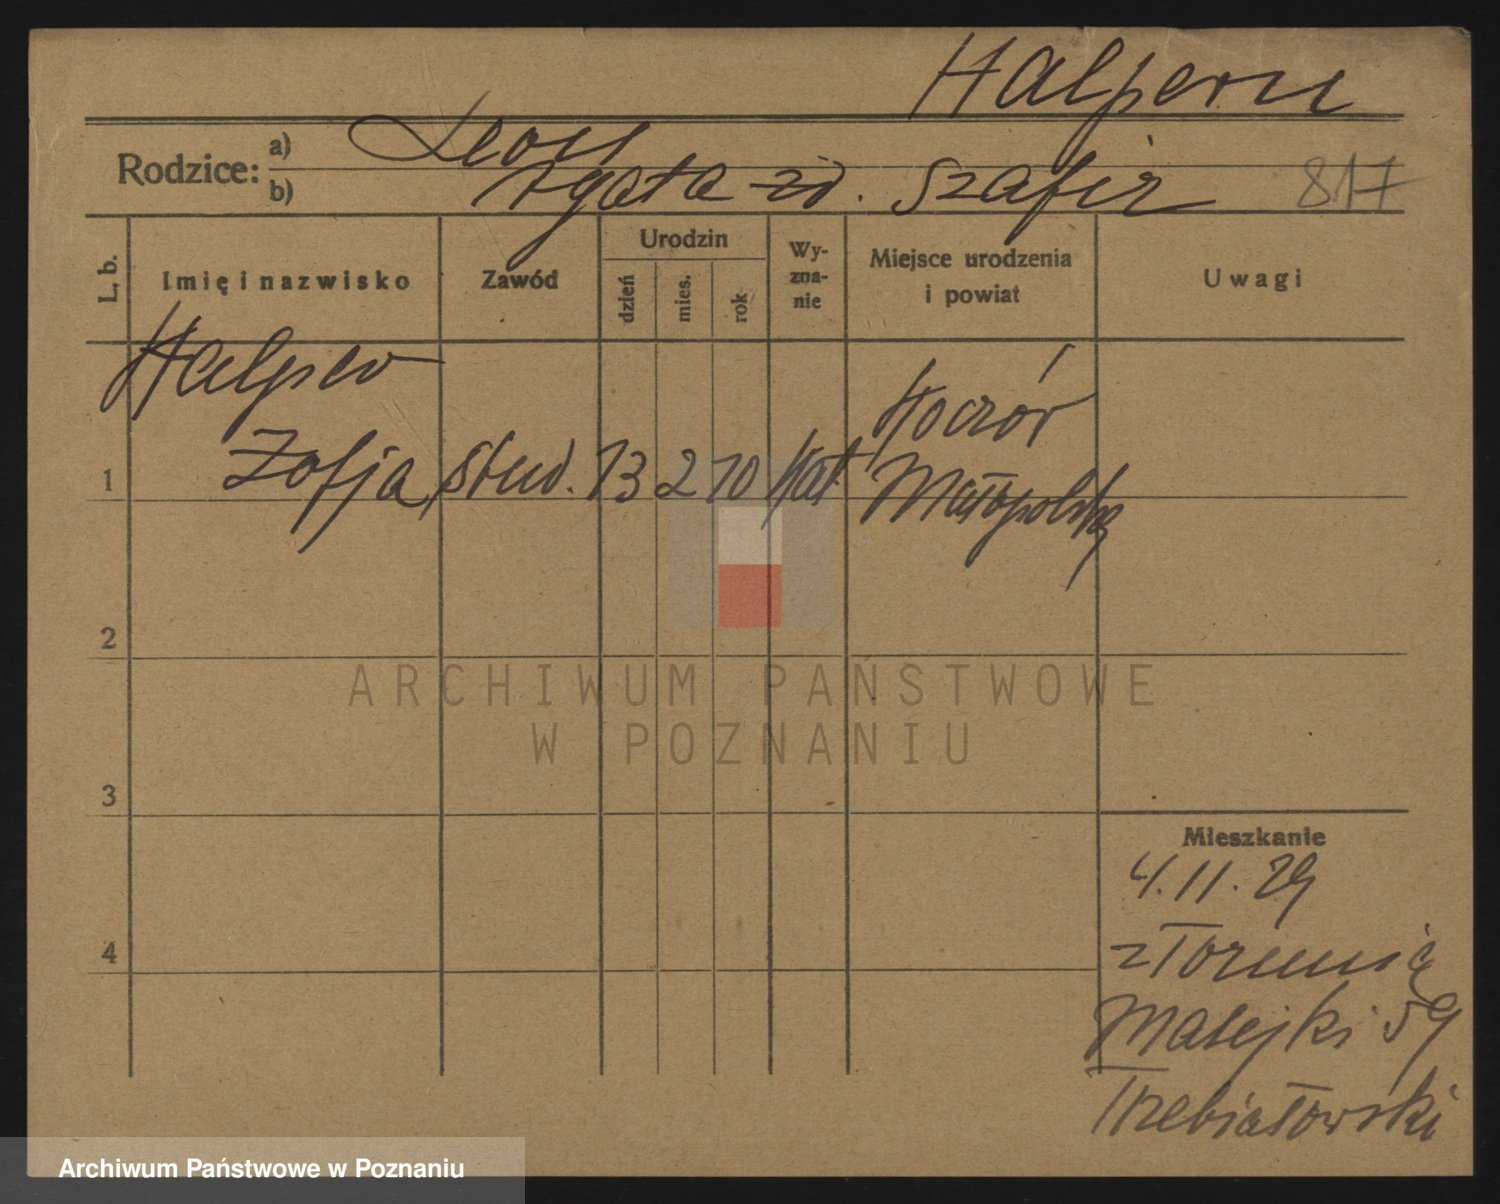 Halpern
Rodzice: a) Leon
b) Agata zd. Szafir 817
L. b. Imię i nazwisko Zawód Urodzin dzień mies. rok Wy-zna-nie Miejsce urodzenia i powiat Uwagi
Halpern Hoczór
1 Zofja stud. 13 2 10 kat. Małopolska
2
3
4
Mieszkanie
4.11.29
z Torunia
Matejki 59
Trebiatowski
ARCHIWUM PAŃSTWOWE
W POZNANIU
Archiwum Państwowe w Poznaniu